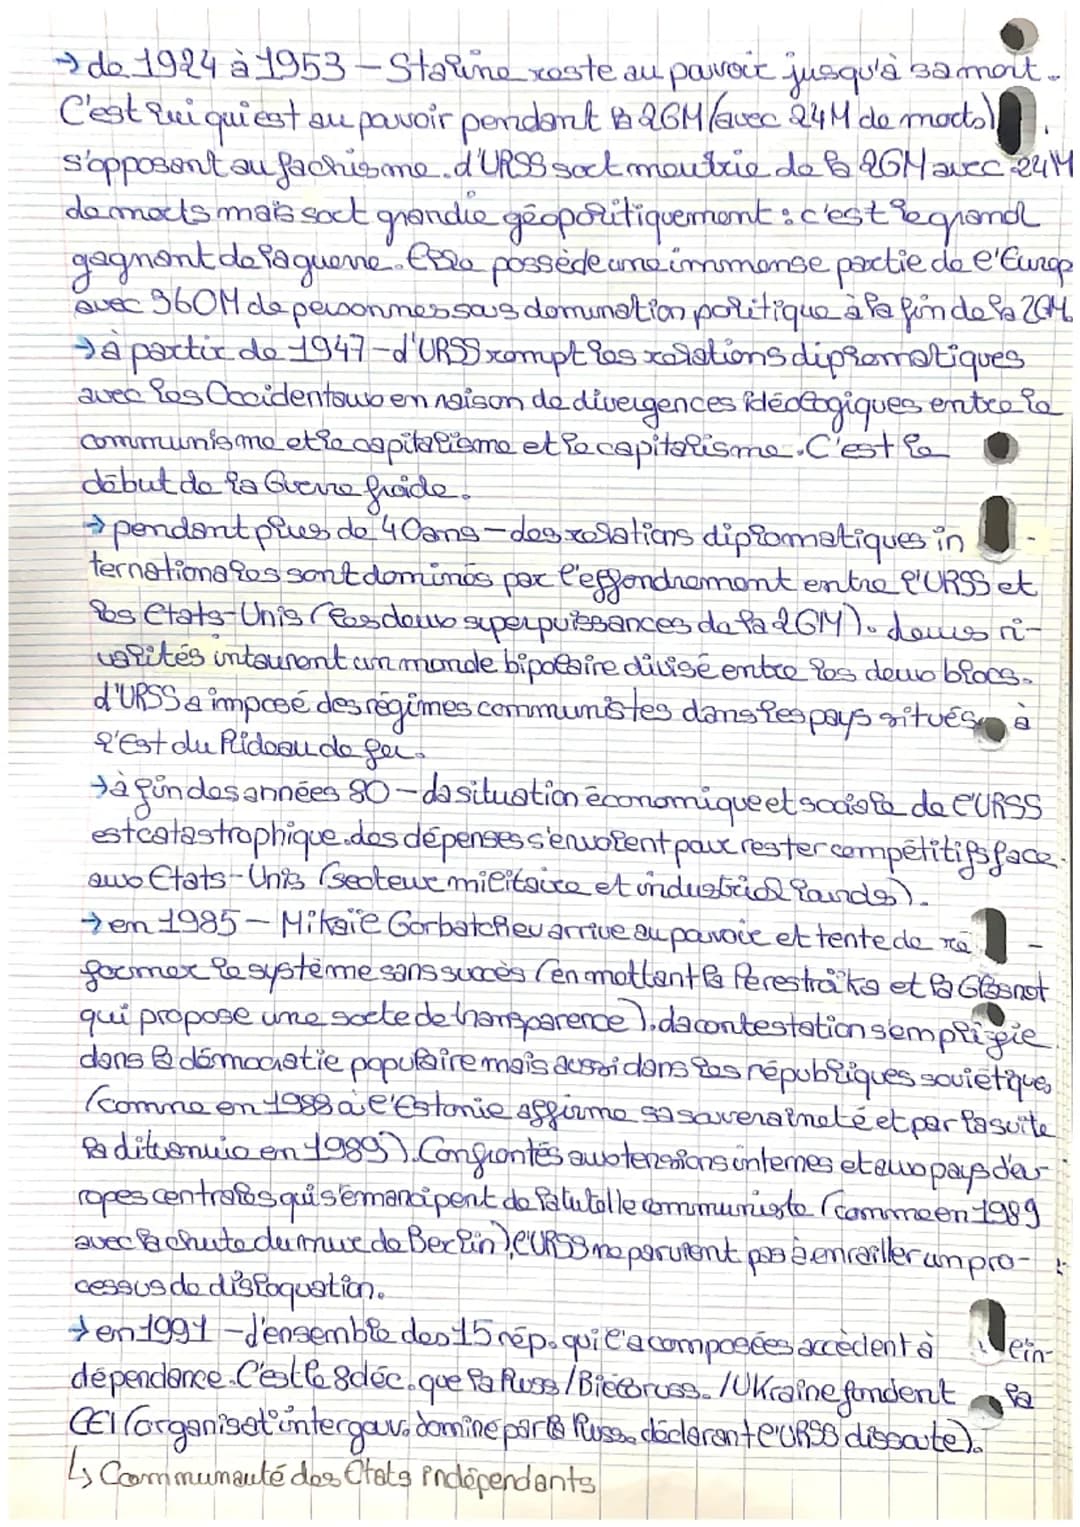 → de 1924 à 1953 – Staline reste au pouvoir jusqu'à sa mort.
C'est lui qui est au pouvoir pendant la 2GM (avec 24M de morts)
s'opposant au fachisme. L'URSS sort meutrie de la 2GM avec 24M
de morts mais sort grandie géopolitiquement : c'est le grand
gagnant de la guerre. Elle possède une immense partie de l'Europ
avec 360M de personnes sous domination politique à la fin de la 2GM.
→ à partir de 1947 – L'URSS rompt les relations diplomatiques
avec les Occidentaux en raison de divergences idéologiques entre le
communisme et le capitalisme et le capitalisme. C'est le
début de la Guerre froide.
→ pendant plus de 40ans – les relations diplomatiques in
ternationales sont dominés par l'effondrement entre l'URSS et
les Etats-Unis (les deux superpuissances de la 2GM). Leurs ri-
valités instaurent un monde bipolaire divisé entre les deux blocs.
L'URSS a imposé des régimes communistes dans les pays situés à
l'Est du Rideau de fer.
→ à fin des années 80 – La situation économique et sociale de l'URSS
est catastrophique. Les dépenses s'envolent pour rester compétitifs face
aux Etats-Unis (secteur militaire et industriel lourds).
→ en 1985 – Mikaïl Gorbatchev arrive au pouvoir et tente de ré -
former le système sans succès (en mettant la Perestroïka et la Glasnot
qui propose une sorte de transparence). La contestation s'emplifie
dans la démocratie populaire mais aussi dans les républiques soviétiques
(comme en 1988 à l'Estonie affirme sa souveraineté et par la suite
la Lituanie en 1989). Confrontés aux tensions internes et aux pays d'eu-
ropes centrales qui s'émancipent de la tutelle communiste (comme en 1989
avec la chute du mur de Berlin), l'URSS ne parvient pas à enrailler un pro-
cessus de dislocation.
→ en 1991 – L'ensemble des 15 rép. qui l'a composées accèdent à l'ein-
dépendance. C'est le 8 déc. que la Russ / Biélorus. / Ukraine fondent la
CEI (organisat° intergouv. domine par la Russ. déclarent l'URSS dissoute).
↳ Communauté des Etats indépendants